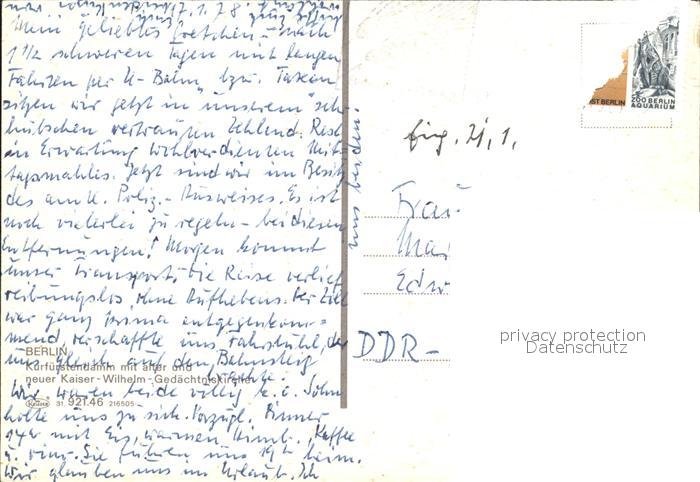 7.1.78.
Mein geliebtes Gretchen - nach
1 1/2 schweren Tagen mit langen
Fahrten per U-Bahn, bzw. Taxen
sitzen wir jetzt in unserem
hübschen vertrauten Zehlend. Rest.
in Erwartung wohlverdienten Mit-
tagsmahles. Jetzt sind wir im Besitz
des Poliz.-Ausweises. Es ist
noch vielerlei zu regeln - bei diesen
Entfernungen! Morgen kommt
unser Transport; die Reise verlief
reibungslos, ohne Aufhebens. Der Zoll
war ganz prima entgegenkom-
mend, verschaffte uns Fahrstuhl, der
uns gleich auf den Bahnsteig
brachte.
BERLIN
Kurfürstendamm mit alter und
neuer Kaiser-Wilhelm-Gedächtniskirche
Wir waren beide völlig k.o. Sohn
Krüger 31. 921.46 216505
holte uns zu sich. Vorzügl. Dinner
mit Eis, warmen Himb. Kaffee
Sie fuhren uns heim.
Wir glauben uns im Urlaub. Ich
uns beiden!
IST BERLIN
ZOO BERLIN
AQUARIUM
Eing. 21.1.
Frau
Mar
Edw
DDR-
privacy protection
Datenschutz